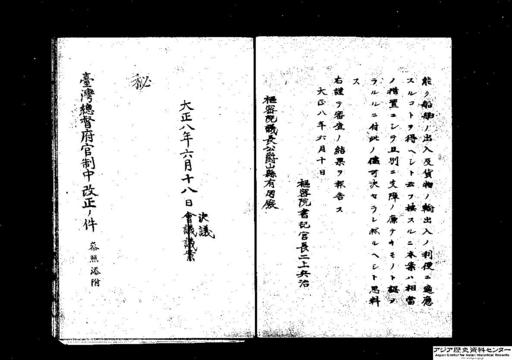 能ク船舶ノ出入及貨物ノ輸出入ノ利便ニ適應
スルコトヲ得ヘシト云フ按スルニ本案ハ相當
ノ措置ニシテ且別ニ支障ノ廉ナキモノト認メ
ラルルニ付此ノ儘可決セラレ然ルヘシト思料
ス
右謹テ審査ノ結果ヲ報告ス
大正八年六月十日
樞密院書記官長二上兵治
樞密院議長公爵山縣有朋殿
大正八年六月十八日
決議
會議議案
秘
臺灣總督府官制中改正ノ件
参照添附
アジア歴史資料センター
Japan Center for Asian Historical Records